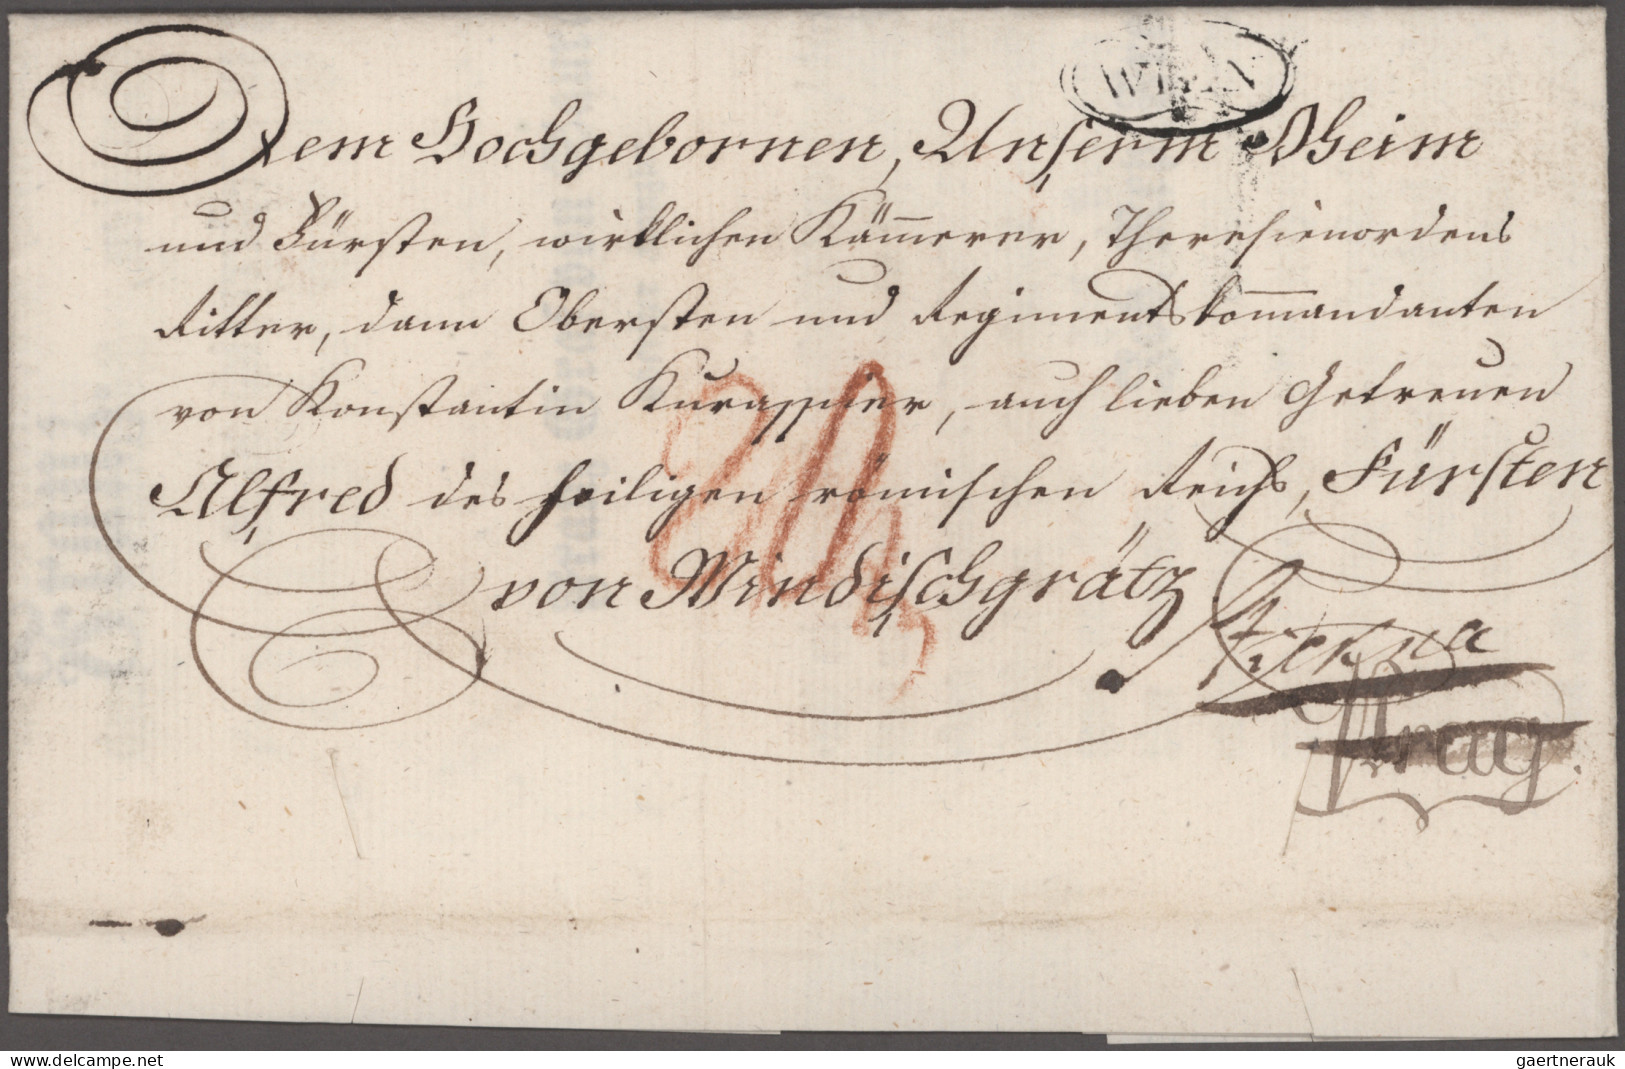 WIEN
Dem Hochgebornen, Unserm Oheim
und Fürsten, wirklichen Käm̅erer, Theresienordens
Ritter, dann Obersten und Regimentskom̅andanten
von Konstantin Kurassier, auch lieben Getreuen
Alfred des heiligen römischen Reichs, Fürsten
von Windischgrätz
Prag.
www.delcampe.net
gaertnerauk